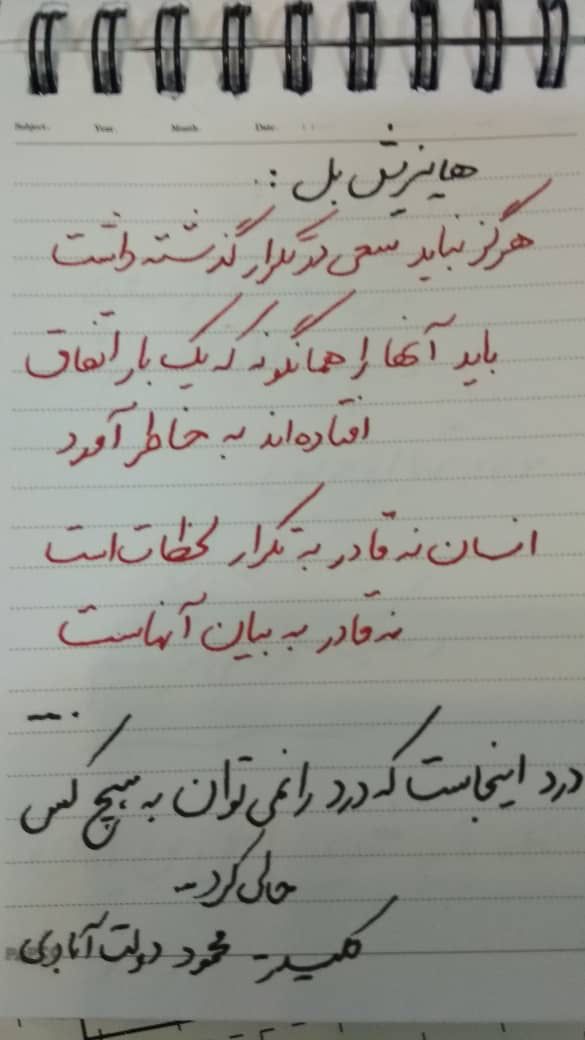 Subject. Year. Month. Date.
هاینریش بل :
هرگز نباید سعی در تکرار گذشته داشت
باید آنها را همانگونه که یک بار اتفاق
افتاده‌اند به خاطر آورد
انسان نه قادر به تکرار لحظات است
نه قادر به بیان آنهاست
درد اینجاست که درد را نمی توان به هیچ کس
حالی کرد..
کلیدر - محمود دولت آبادی